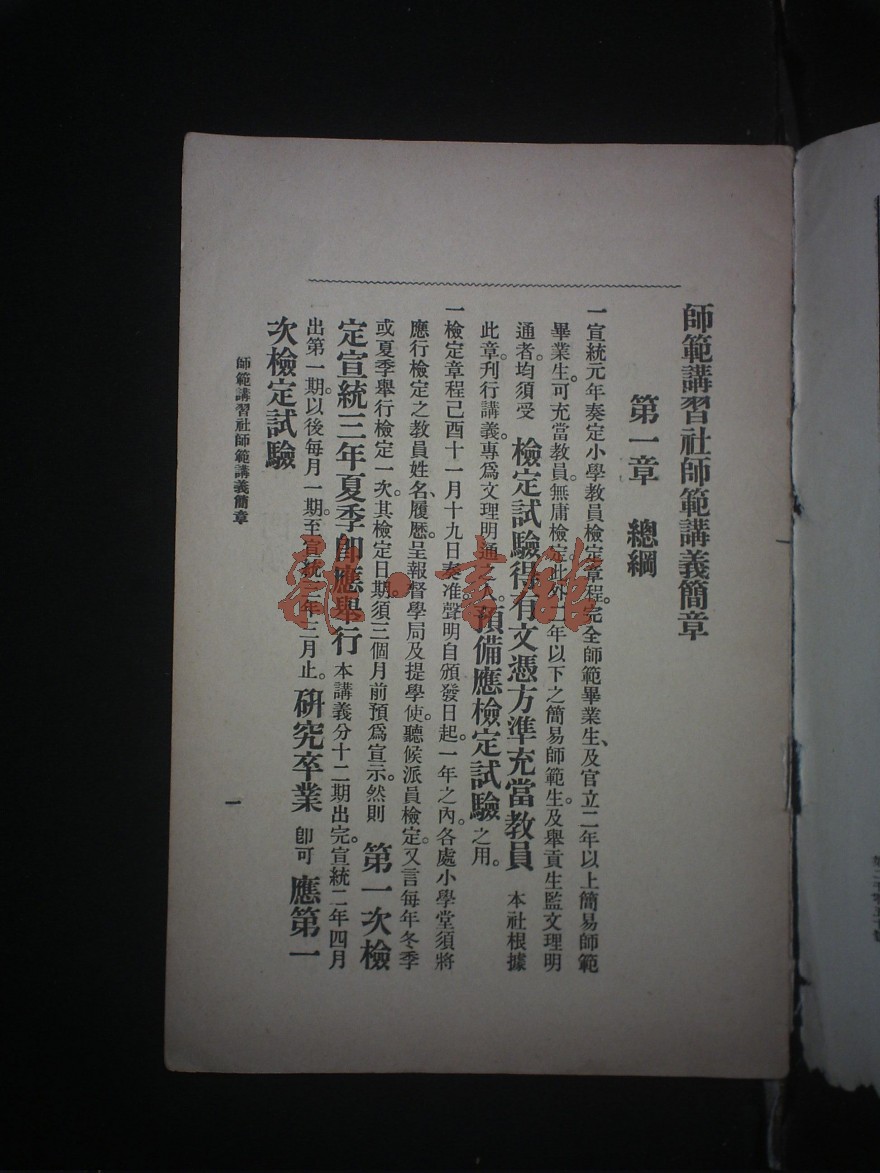 師範講習社師範講義簡章
第一章　總綱
一宣統元年奏定小學教員檢定章程。完全師範畢業生、及官立二年以上簡易師範
畢業生。可充當教員。無庸檢定。此外二年以下之簡易師範生。及舉貢生監文理明
通者。均須受　檢定試驗得有文憑方準充當教員　本社根據
此章。刊行講義。專爲文理明通之人。預備應檢定試驗之用。
一檢定章程己酉十一月十九日奏准聲明自頒發日起。一年之內。各處小學堂須將
應行檢定之教員姓名、履歷。呈報督學局及提學使。聽候派員檢定。又言每年冬季
或夏季舉行檢定一次。其檢定日期。須三個月前預爲宣示。然則　第一次檢
定宣統三年夏季卽應舉行　本講義分十二期出完。宣統二年四月
出第一期。以後每月一期。至宣統三年三月止。研究卒業　卽可　應第一
次檢定試驗
師範講習社師範講義簡章
一
雜·書館